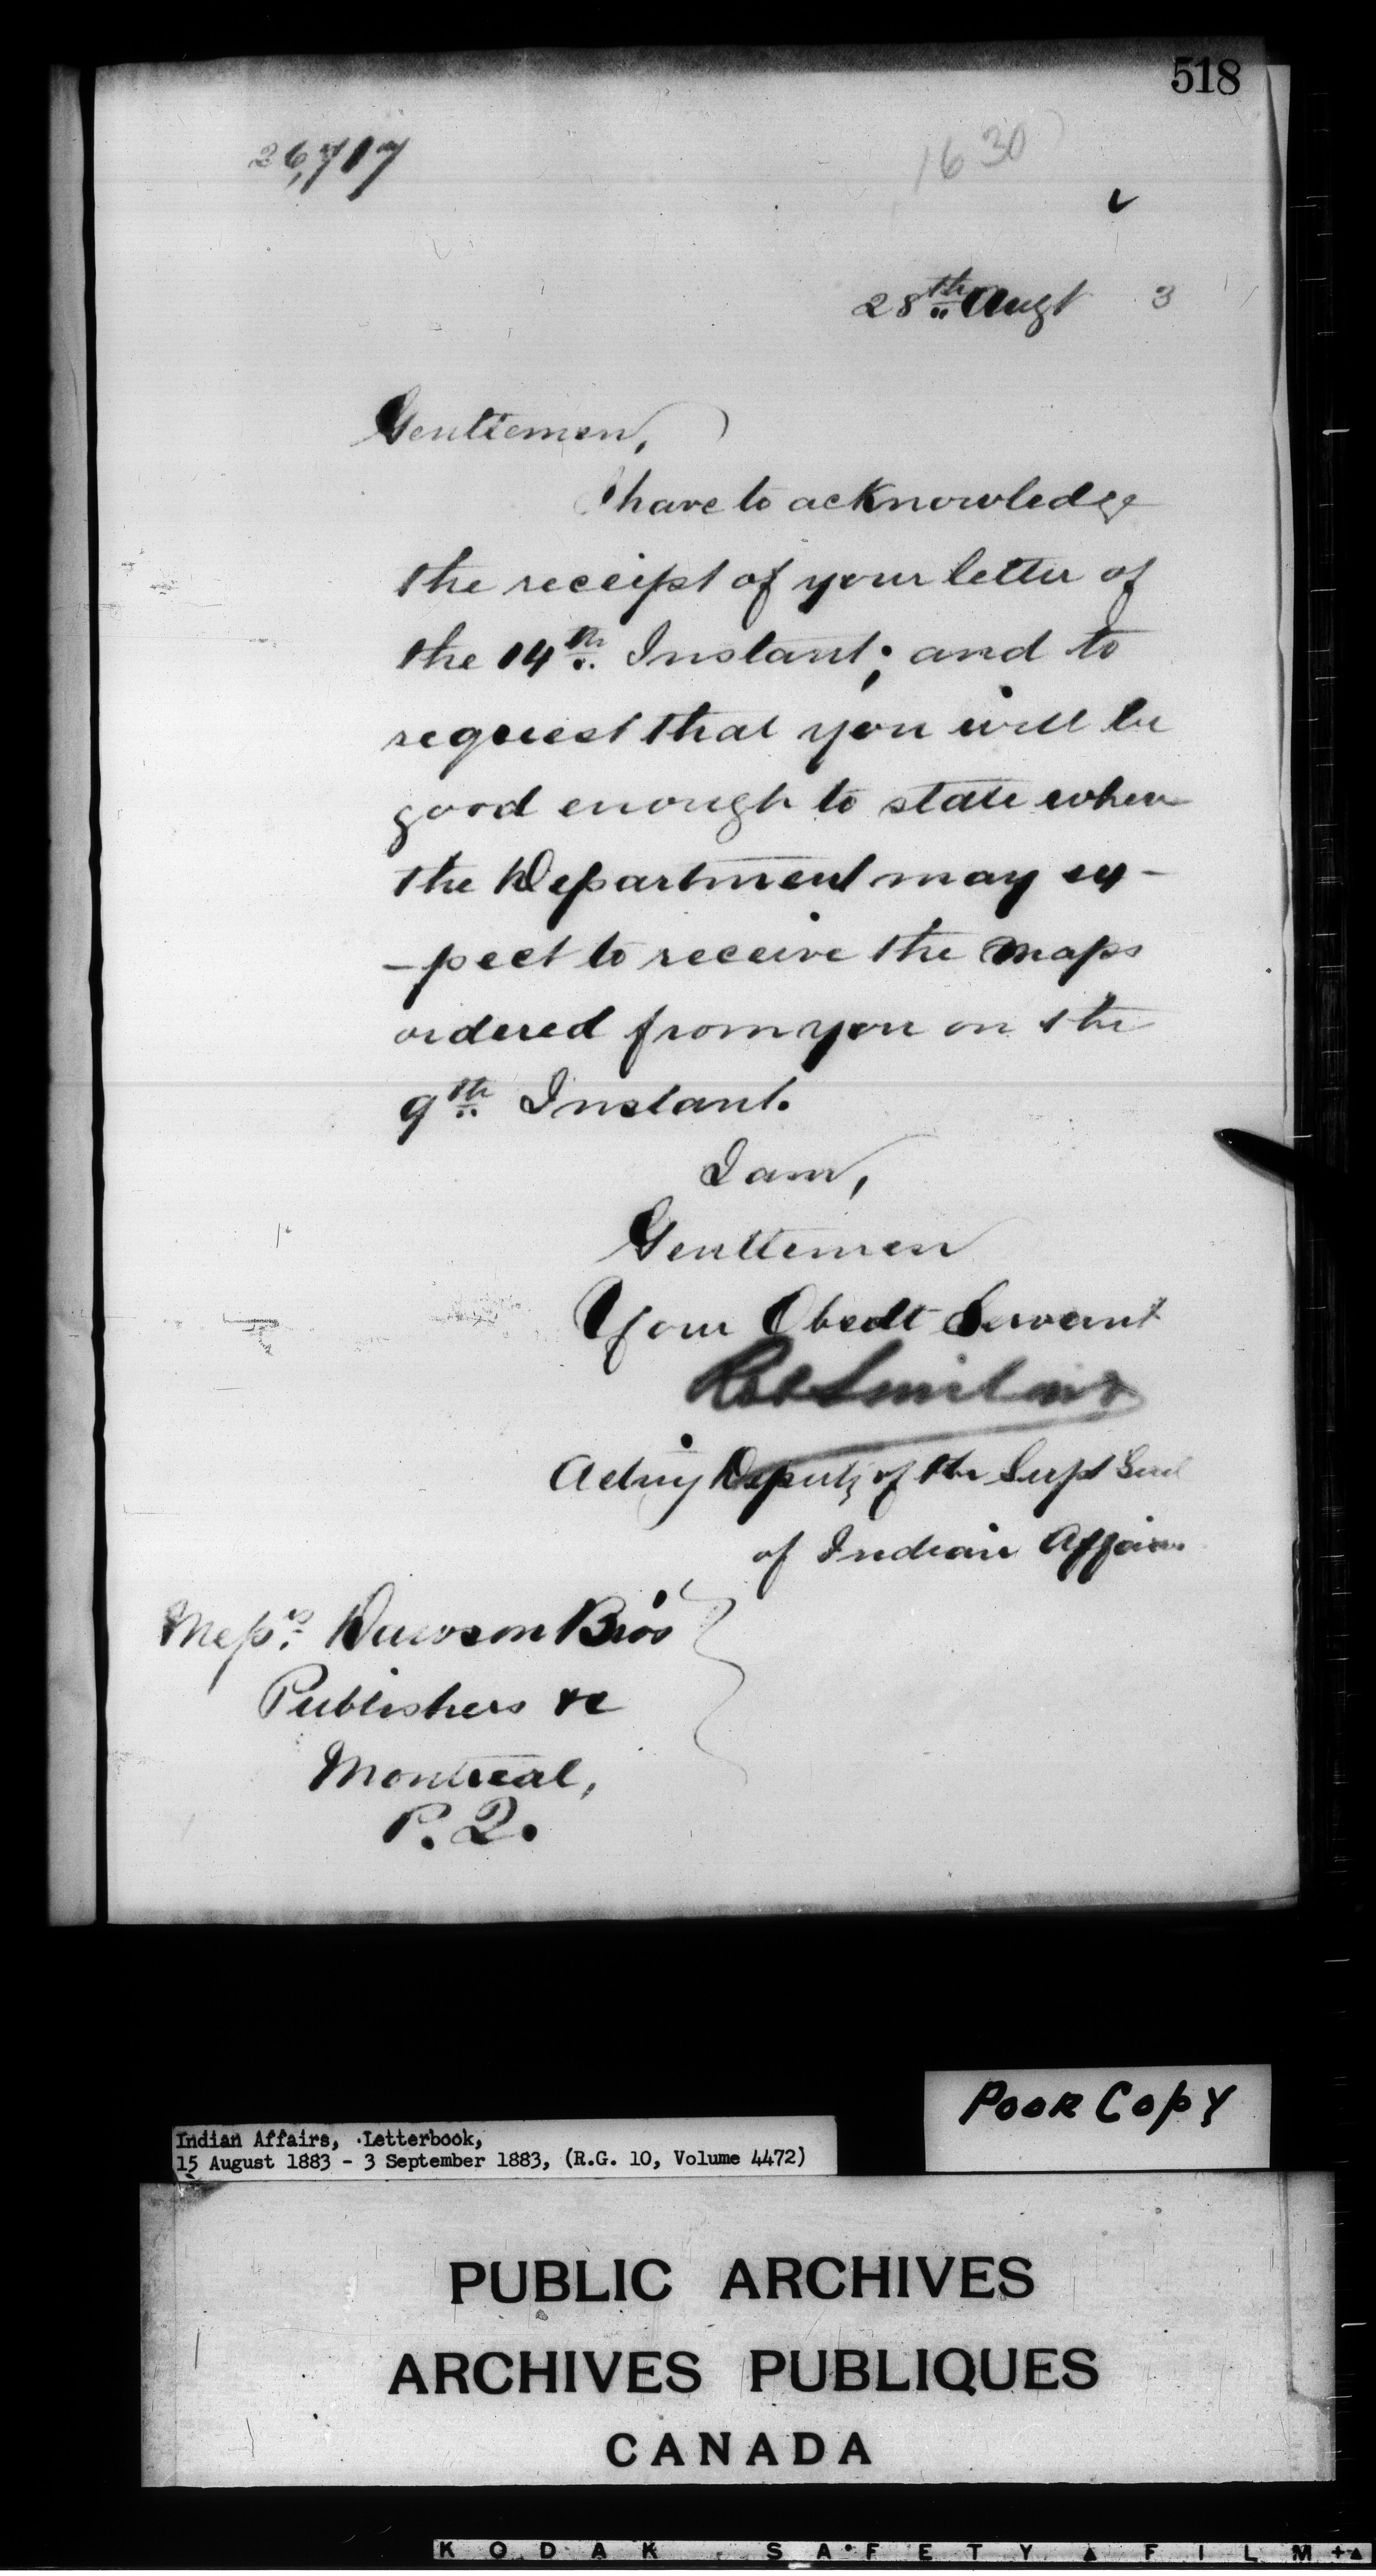 518
26,717
1630
28th Augt 3
Gentlemen,
I have to acknowledge
the receipt of your letter of
the 14th Instant; and to
request that you will be
good enough to state when
the Department may ex-
-pect to receive the maps
ordered from you on the
9th Instant.
I am,
Gentlemen
Your Obedt Servant
Acting Deputy of the Supt Genl
of Indian Affairs
Messrs. Dawson Bros
Publishers &c
Montreal,
P.Q.
POOR COPY
Indian Affairs, Letterbook,
15 August 1883 - 3 September 1883, (R.G. 10, Volume 4472)
PUBLIC ARCHIVES
ARCHIVES PUBLIQUES
CANADA
KODAK SAFETY FILM